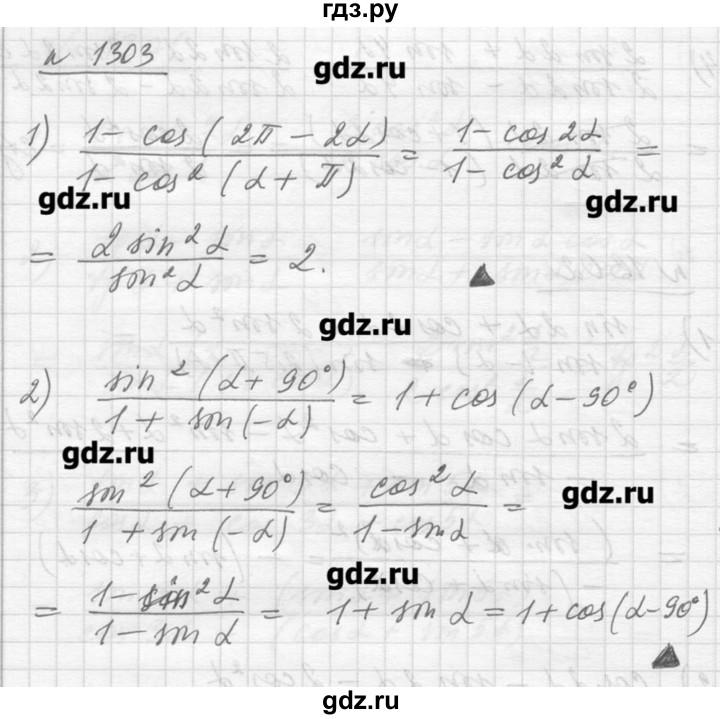 гдз.ру
n 1303
gdz.ru
1) (1 - cos(2π - 2α)) / (1 - cos²(α + π)) = (1 - cos 2α) / (1 - cos² α) =
gdz.ru gdz.ru
= (2 sin² α) / (sin² α) = 2. ▲
gdz.ru
2) (sin²(α + 90°)) / (1 + sin(-α)) = 1 + cos(α - 90°)
gdz.ru
(sin²(α + 90°)) / (1 + sin(-α)) = (cos² α) / (1 - sin α) =
gdz.ru
gdz.ru
= (1 - sin² α) / (1 - sin α) = 1 + sin α = 1 + cos(α - 90°) ▲
gdz.ru